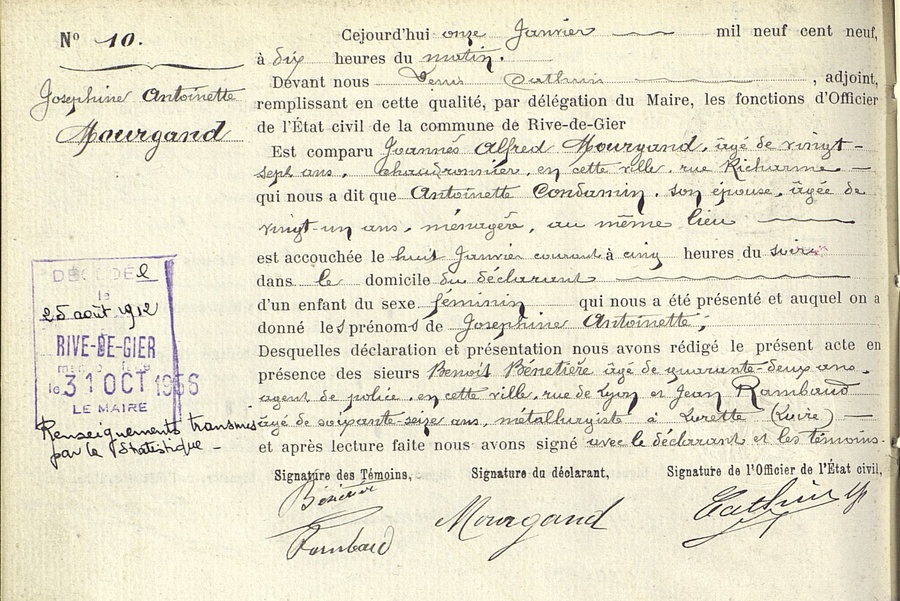 N° 10.
Josephine Antoinette
Mourgand
Cejourd'hui onze Janvier mil neuf cent neuf,
à dix heures du matin.
Devant nous Denis , adjoint,
remplissant en cette qualité, par délégation du Maire, les fonctions d'Officier
de l'État civil de la commune de Rive-de-Gier
Est comparu Joannés Alfred Mourgand, âgé de vingt-
sept ans, Chaudronnier, en cette ville, rue Richarme
qui nous a dit que Antoinette Condamin, son épouse, âgée de
vingt-un ans, ménagère, au même lieu
est accouchée le huit Janvier courant à cinq heures du soir
dans le domicile du déclarant
d'un enfant du sexe féminin qui nous a été présenté et auquel on a
donné les prénoms de Josephine Antoinette;
Desquelles déclaration et présentation nous avons rédigé le présent acte en
présence des sieurs Benoit Bénetière âgé de quarante-deux ans,
agent de police, en cette ville, rue de Lyon et Jean Rambaud
âgé de soixante-seize ans, métallurgiste à Lorette (Loire)
et après lecture faite nous avons signé avec le déclarant et les témoins.
Signature des Témoins, Signature du déclarant, Signature de l'Officier de l'État civil,
Mourgand
Rambaud
DECEDE
le
25 août 1912
RIVE-DE-GIER
le 31 OCT 1956
LE MAIRE
Renseignements transmis
par la Statistique -